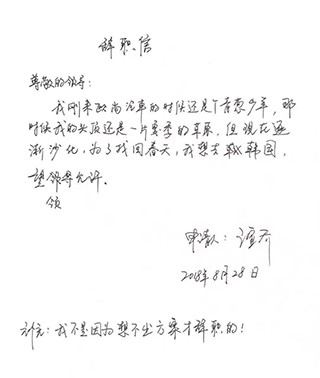 辞职信
尊敬的领导:
我刚来欧尚汽车的时候还是个青葱少年,那
时候我的头顶还是一片茂密的草原,但现在逐
渐沙化,为了找回春天,我想去趟韩国,
望领导允许。
领
申请人:
2018年8月28日
补充:我不是因为想不出方案才辞职的!